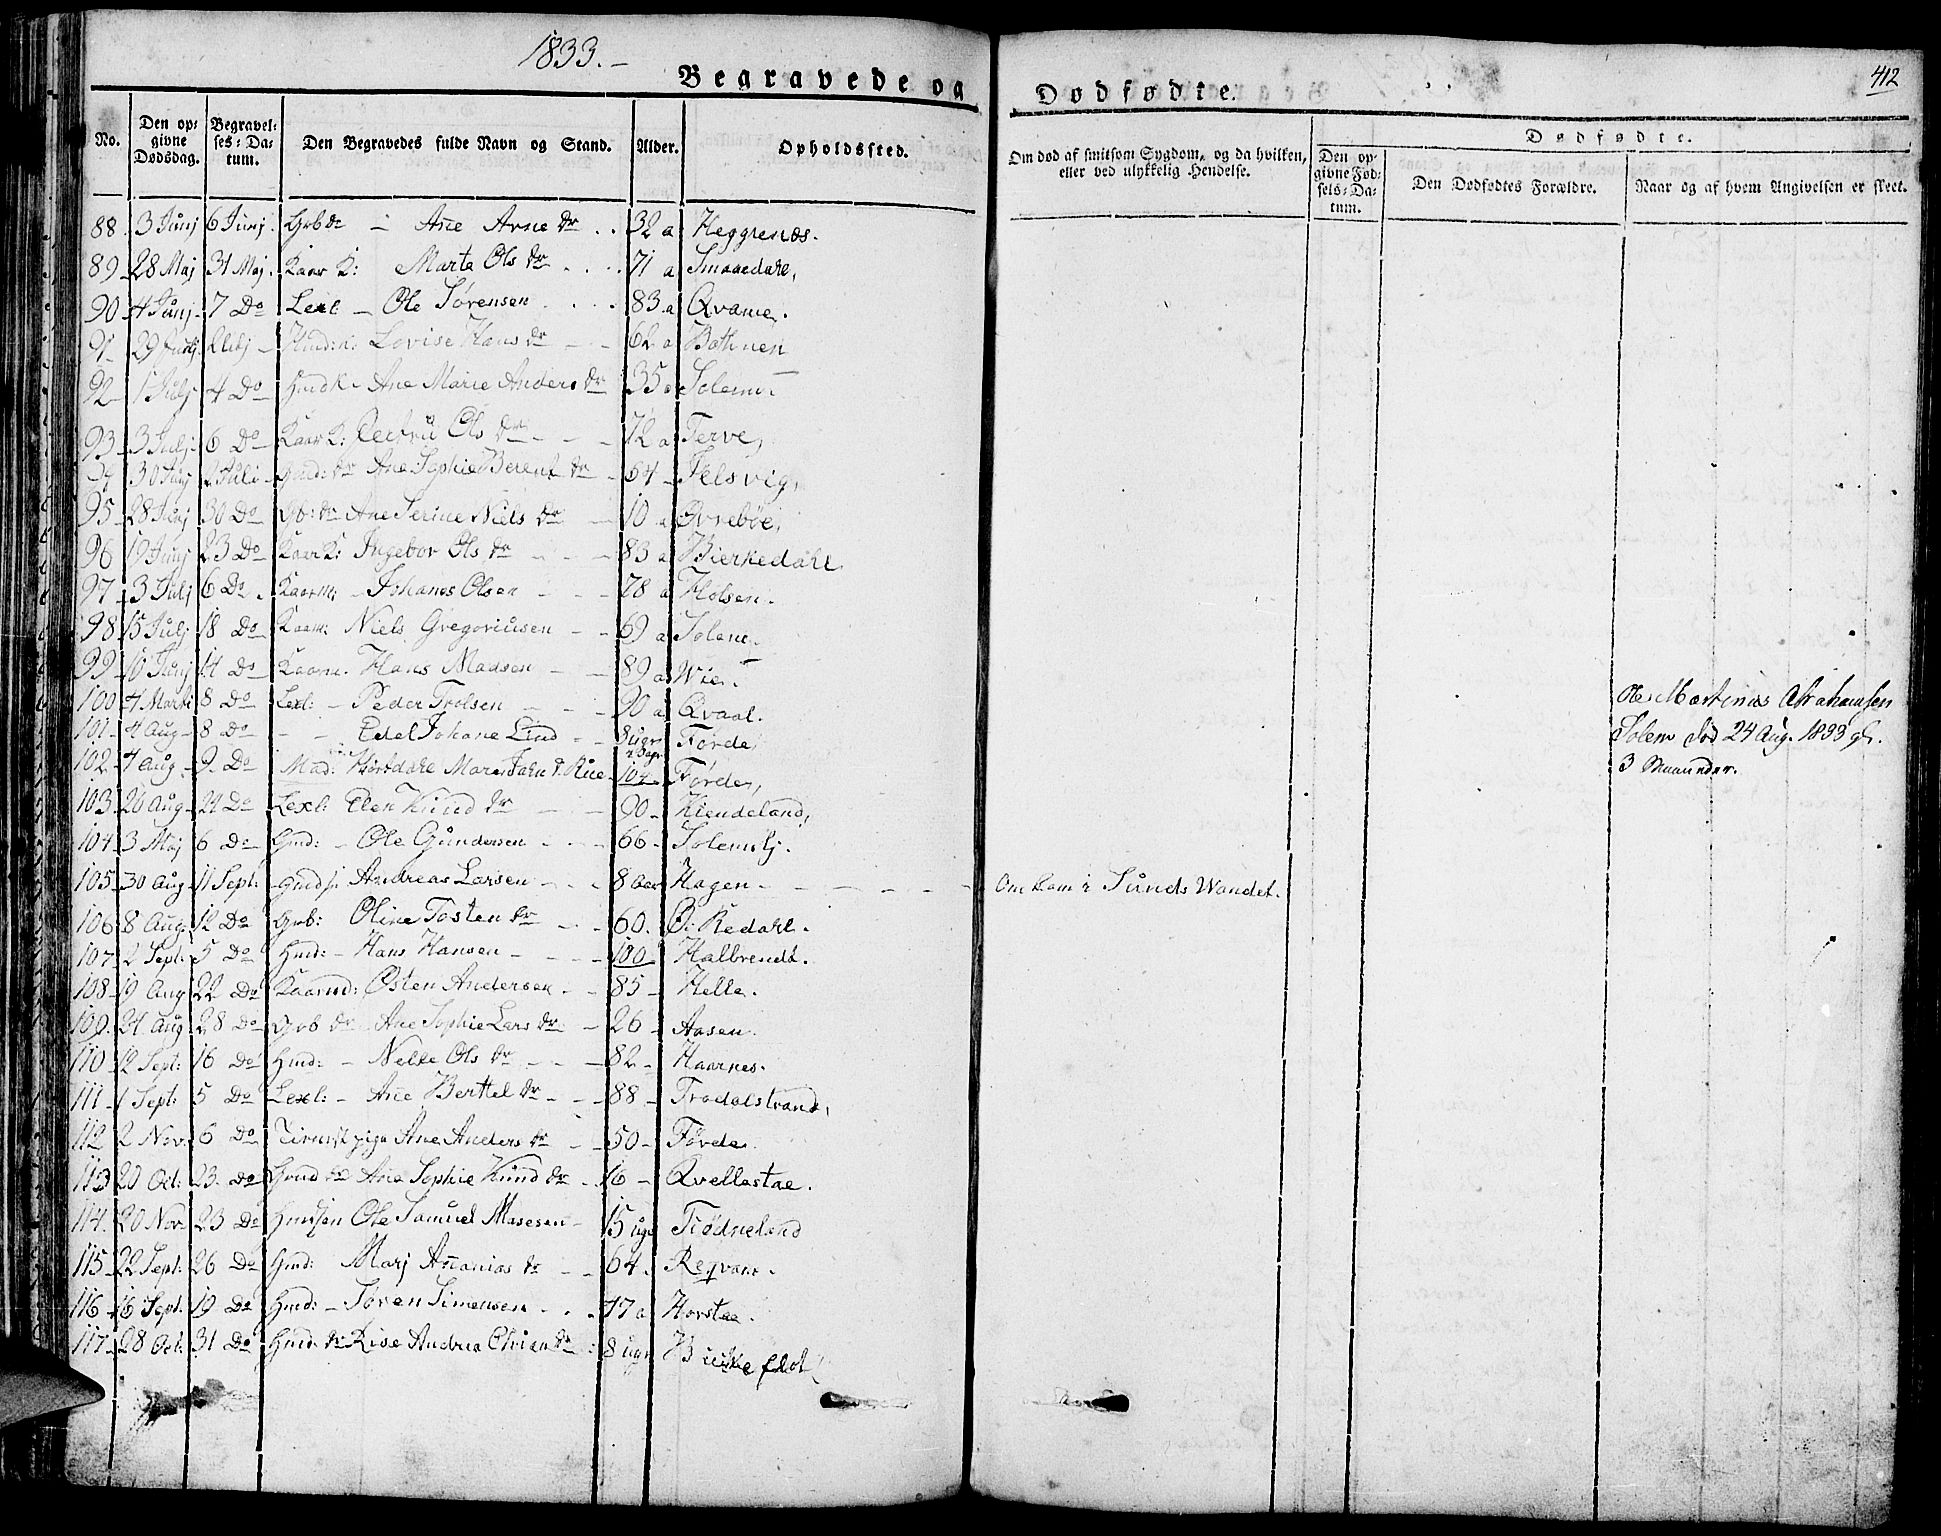 1833.-
Begravede og
Dødfødte.
412
No.
Den op-
givne
Dødsdag.
Begravel-
ses-Da-
tum.
Den Begravedes fulde Navn og Stand.
Alder.
Opholdsted.
Om død af smitsom Sygdom, og da hvilken,
eller ved ulykkelig Hendelse.
Dødfødte.
Den op-
givne Fød-
sels-Da-
tum.
Den Dødfødtes Forældre.
Naar og af hvem Angivelsen er skeet.
88. 3 Junj 6 Junj. Grbdr - Añe Arne dr . . 32 a Heggrenæs.
89 - 28 Maj 31 Maj. Kaar K: Marta Ols dr . . . . 71 a Smaaedahl,
90 - 4 Junj - 7 Do Lexl: - Ole Sørensen . . . 83 a Qvame.
91 29 Lovise Hans dr - - 62 a Bøthuen
92 - 1 Julj 4 Do Hmd K - Ane Marie Anders dr 35 a Solem.
93 - 3 Julj - 6 Do - Kaar K: Ols dr - - - 72 a Terve,
94 30 Junj 2 Juli - Hmd: dr Ane Sophie Berent dr - 64 - Felsvig,
95 - 28 Junj 30 Do - Gb: dr Ane Serine Niels dr - 10 a Øvrebøe,
96 19 Junj 23 Do - Kaar K: Ingebor Ols dr - - - 83 a Bierkedahl
97 - 3 Julj 6 Do - Kaarm: - Johanes Olsen - - - 78 a Holsen.
98 15 Julj 18 Do - Kaarm: Niels Gregoriusen - - 69 a Solem.
99 - 10 Junj 14 Do - Kaarm. Hans Madsen - - 89 a Wie.
100 4 Marti 8 Do - Lexl: - Peder Trolsen - - - 90 a Qvaal.
101 - 4 Aug - 8 Do - - - Edel Johane Lind - - 8 ugr Førde
102 - 4 Aug - 9 - Do Mad: - 104 - Førde,
103 20 Aug - 24 Do - Lexl: Elen Knud dr - - 90 - Hiendeland,
104 - 3 Maj 6 Do - Hmd: - Ole Gundersen - - - 66 - Solemslj.
105 - 30 Aug - 11 Sept: - Andreas Larsen - - - 8 aar Hagen - - - - - - Om kom i Sunds Wandet.
106 8 Aug - 12 Do Grb: Oline Tosten dr - - 60. Ø: Redahl.
107 - 2 Sept: 5 Do Hmd: - Hans Hansen - - - - 100 Halbrendt.
108 - 19 Aug 22 Do Kaarmd: Østen Andersen - - 85 - Helle.
109. 24 Aug 28 Do Grb dr - Ane Sophie Lars dr - 26 - Aasen.
110 12 Sept: 16 Do Hmd: - Nelle Ols dr - - - 82 - Haarnes.
111 - 1 Sept: 5 Do Lexl: - Añe Berttel dr - - - 88 - Trodalstrand,
112 2 Nov. 6 Do Ane Anders dr - - 50 - Førde.
113 20 Oct: 23. Do Hmd dr Ane Sophie Knud dr - 16 - Qvellestae.
114. 20 Nov. 23 Do Hmdsøn Ole Samuel Masesen - 15 ugr Fiødneland
115 - 22 Sept: 26 Do Hmd: Marj Añanias dr - - 64. Reqvam.
116 - 16 Sept: 19 Do Hmd: - Søren Simensen - . . 47 a Horstae.
117 - 28 Oct: 31 Do Hmd: dr Andrea dr : 8 ugr
Ole Martinus Abrahamsen
Solem død 24 Aug. 1833 gl.
3 Maaneder.